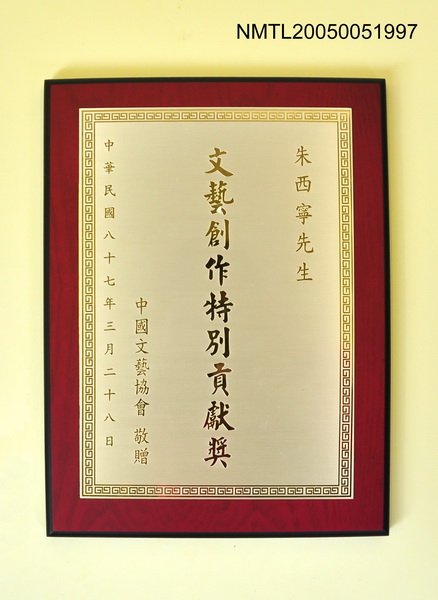 NMTL20050051997
朱西寧先生
文藝創作特別貢獻獎
中國文藝協會 敬贈
中華民國八十七年三月二十八日